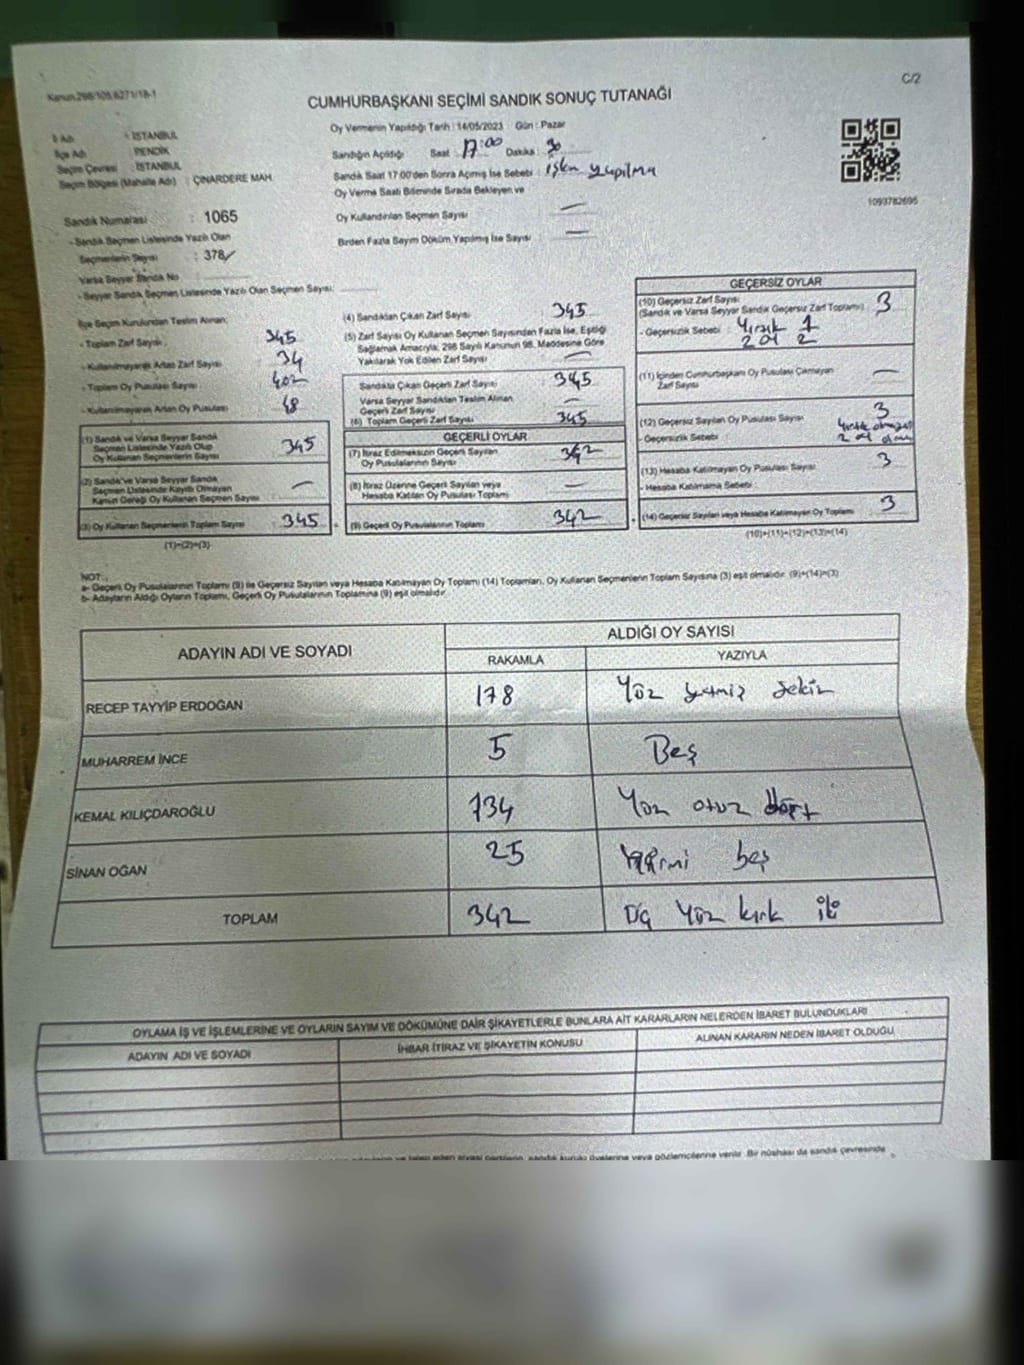 Kanun:298/105,6271/18-1
C/2
CUMHURBAŞKANI SEÇİMİ SANDIK SONUÇ TUTANAĞI
İl Adı : İSTANBUL
İlçe Adı : PENDİK
Seçim Çevresi : İSTANBUL
Seçim Bölgesi (Mahalle Adı) : ÇINARDERE MAH.
Sandık Numarası : 1065
- Sandık Seçmen Listesinde Yazılı Olan
Seçmenlerin Sayısı : 378
Varsa Seyyar Sandık No
- Seyyar Sandık Seçmen Listesinde Yazılı Olan Seçmen Sayısı:
Oy Vermenin Yapıldığı Tarih : 14/05/2023 Gün : Pazar
Sandığın Açıldığı Saat : 17:00 Dakika : 30
Sandık Saat 17:00'den Sonra Açılmış İse Sebebi : yapılma
Oy Verme Saati Bitiminde Sırada Bekleyen ve
Oy Kullandırılan Seçmen Sayısı : —
Birden Fazla Sayım Döküm Yapılmış İse Sayısı : —
1093782695
İlçe Seçim Kurulundan Teslim Alınan;
- Toplam Zarf Sayısı : 345
- Kullanılmayarak Artan Zarf Sayısı : 34
- Toplam Oy Pusulası Sayısı : 402
- Kullanılmayarak Artan Oy Pusulası : 48
(1) Sandık ve Varsa Seyyar Sandık
Seçmen Listesinde Yazılı Olup
Oy Kullanan Seçmenlerin Sayısı 345
(2) Sandık ve Varsa Seyyar Sandık
Seçmen Listesinde Kayıtlı Olmayan
Kanun Gereği Oy Kullanan Seçmen Sayısı —
(3) Oy Kullanan Seçmenlerin Toplam Sayısı 345
(1)+(2)=(3)
(4) Sandıktan Çıkan Zarf Sayısı : 345
(5) Zarf Sayısı Oy Kullanan Seçmen Sayısından Fazla İse, Eşitliği
Sağlamak Amacıyla, 298 Sayılı Kanunun 98. Maddesine Göre
Yakılarak Yok Edilen Zarf Sayısı : —
Sandıkta Çıkan Geçerli Zarf Sayısı : 345
Varsa Seyyar Sandıktan Teslim Alınan
Geçerli Zarf Sayısı : —
(6) Toplam Geçerli Zarf Sayısı : 345
GEÇERLİ OYLAR
(7) İtiraz Edilmeksizin Geçerli Sayılan
Oy Pusulalarının Sayısı : 342
(8) İtiraz Üzerine Geçerli Sayılan veya
Hesaba Katılan Oy Pusulası Toplamı : —
(9) Geçerli Oy Pusulalarının Toplamı : 342
GEÇERSİZ OYLAR
(10) Geçersiz Zarf Sayısı
(Sandık ve Varsa Seyyar Sandık Geçersiz Zarf Toplamı) : 3
- Geçersizlik Sebebi : Yırtık 1
2
(11) İçinden Cumhurbaşkanı Oy Pusulası Çıkmayan
Zarf Sayısı —
(12) Geçersiz Sayılan Oy Pusulası Sayısı : 3
- Geçersizlik Sebebi :
(13) Hesaba Katılmayan Oy Pusulası Sayısı : 3
- Hesaba Katılmama Sebebi :
(14) Geçersiz Sayılan veya Hesaba Katılmayan Oy Toplamı 3
(10)+(11)+(12)+(13)=(14)
NOT :
a- Geçerli Oy Pusulalarının Toplamı (9) ile Geçersiz Sayılan veya Hesaba Katılmayan Oy Toplamı (14) Toplamları, Oy Kullanan Seçmenlerin Toplam Sayısına (3) eşit olmalıdır. (9)+(14)=(3)
b- Adayların Aldığı Oyların Toplamı, Geçerli Oy Pusulalarının Toplamına (9) eşit olmalıdır.
ADAYIN ADI VE SOYADI
ALDIĞI OY SAYISI
RAKAMLA YAZIYLA
RECEP TAYYİP ERDOĞAN 178 Yüz yetmiş sekiz
MUHARREM İNCE 5 Beş
KEMAL KILIÇDAROĞLU 134 Yüz otuz dört
SİNAN OĞAN 25 Yirmi beş
TOPLAM 342 Üç Yüz kırk iki
OYLAMA İŞ VE İŞLEMLERİNE VE OYLARIN SAYIM VE DÖKÜMÜNE DAİR ŞİKAYETLERLE BUNLARA AİT KARARLARIN NELERDEN İBARET BULUNDUKLARI
ADAYIN ADI VE SOYADI İHBAR İTİRAZ VE ŞİKAYETİN KONUSU ALINAN KARARIN NEDEN İBARET OLDUĞU
eden siyasi partilerin, sandık kurulu üyelerine veya gözlemcilerine verilir. Bir nüshası da sandık çevresinde